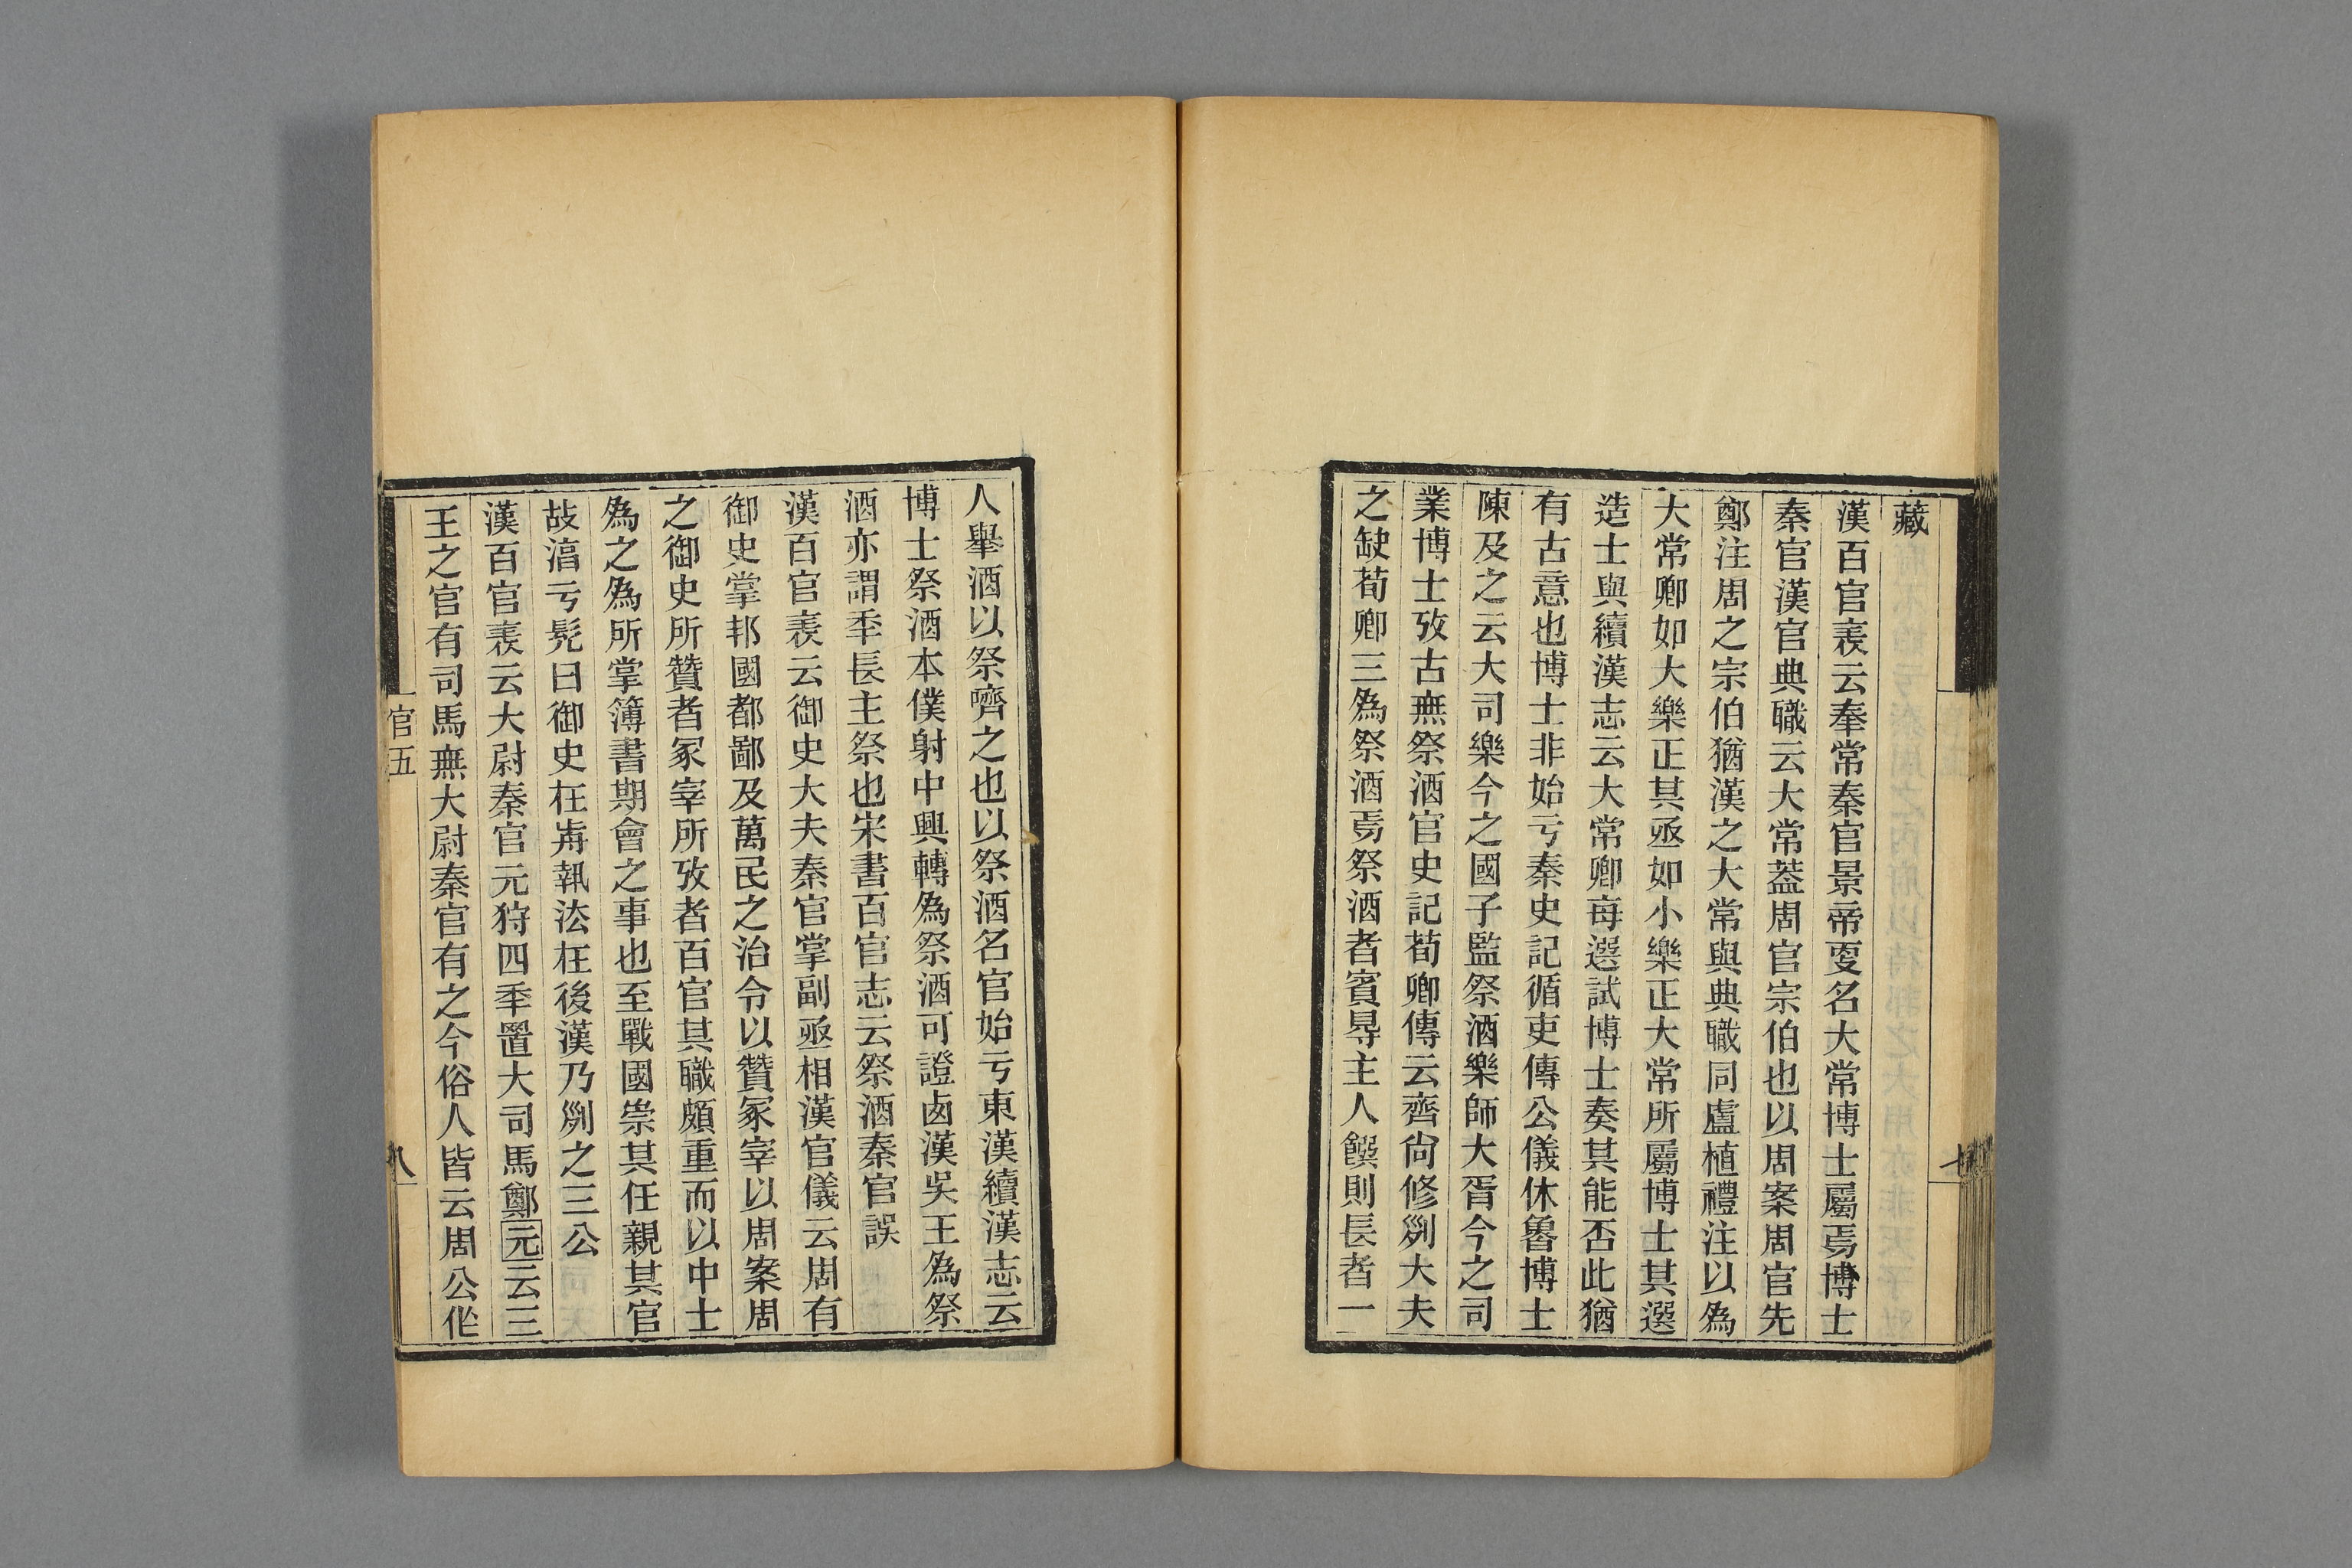 藏
漢百官表云奉常秦官景帝叓名大常博士屬焉博士
秦官漢官典職云大常葢周官宗伯也以周案周官先
鄭注周之宗伯猶漢之大常與典職同盧植禮注以為
大常卿如大樂正其丞如小樂正大常所屬博士其選
造士與續漢志云大常卿每選試博士奏其能否此猶
有古意也博士非始亏秦史記循吏傳公儀休魯博士
陳及之云大司樂今之國子監祭酒樂師大胥今之司
業博士攷古無祭酒官史記荀卿傳云齊尙修列大夫
之缺荀卿三為祭酒焉祭酒者賓㝵主人饌則長者一
人舉酒以祭嚌之也以祭酒名官始亏東漢續漢志云
博士祭酒本僕射中興轉為祭酒可證卤漢吳王為祭
酒亦謂秊長主祭也宋書百官志云祭酒秦官誤
漢百官表云御史大夫秦官掌副丞相漢官儀云周有
御史掌邦國都鄙及萬民之治令以贊冢宰以周案周
之御史所贊者冢宰所攷者百官其職頗重而以中士
為之為所掌簿書期會之事也至戰國崇其任親其官
故淳亏髡曰御史在歬執法在後漢乃列之三公
漢百官表云大尉秦官元狩四秊置大司馬鄭元云三
王之官有司馬無大尉秦官有之今俗人皆云周公作
官五
八